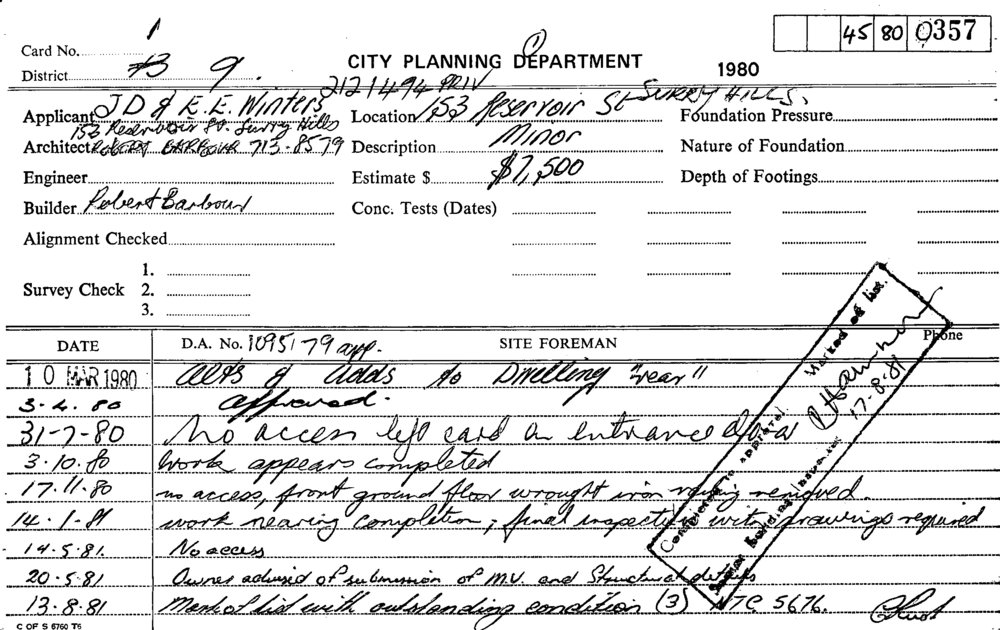 1
45 80 0357
Card No.
District B 9.
CITY PLANNING DEPARTMENT
1
1980
2121494 PRIV
Applicant J D & E. E. Winters
152 Reservoir St. Surry Hills
Location 153 Reservoir St SURRY HILLS.
Foundation Pressure
Architect ROBERT BARBOUR 713-8579
Description Minor
Nature of Foundation
Engineer
Estimate $ $7,500
Depth of Footings
Builder Robert Barbour
Conc. Tests (Dates)
Alignment Checked
Survey Check
1.
2.
3.
DATE
D.A. No. 1095179 app.
SITE FOREMAN
Phone
10 MAR 1980 Alts & Adds to Dwelling "rear"
3-4.80 approved.
31-7-80 No access left card on entrance door
3.10.80 Work appears completed
17.11.80 no access, front ground floor wrought iron removed.
14.1.81 work nearing completion; final inspection with drawings required
14.5.81. No access
20.5.81 Owner advised of submission of M.V. and Structural details
13.8.81 Mark of list with outstanding condition (3) NTC 5676.
Marked off list.
17-8-81
Completed as approved
Building Inspector
C OF S 6760 T6